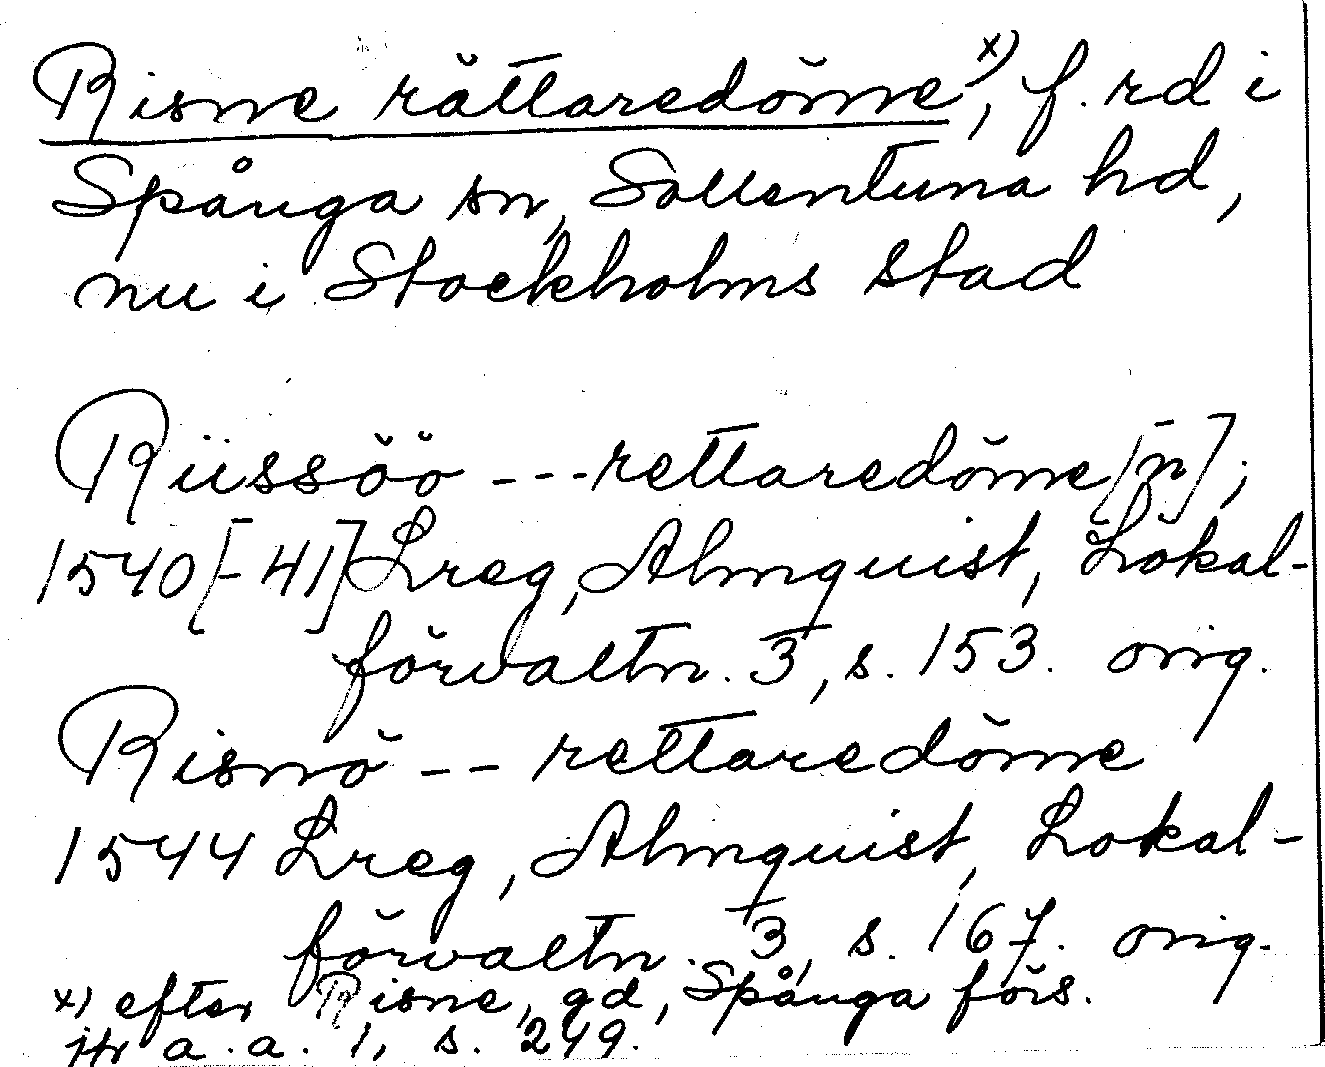 Risne rättaredöme x), f. rd i
Spånga sn, Sollentuna hd,
nu i Stockholms stad
Riissöö --- rettaredöme[n];
1540[-41] Lreg, Almquist, Lokal-
förvaltn. 3, s. 153. orig.
Risnö -- rettaredöme
1544 Lreg, Almquist, Lokal-
förvaltn. 3, s. 167. orig.
x) efter Risne, gd, Spånga förs.
jfr a.a. 1, s. 249.